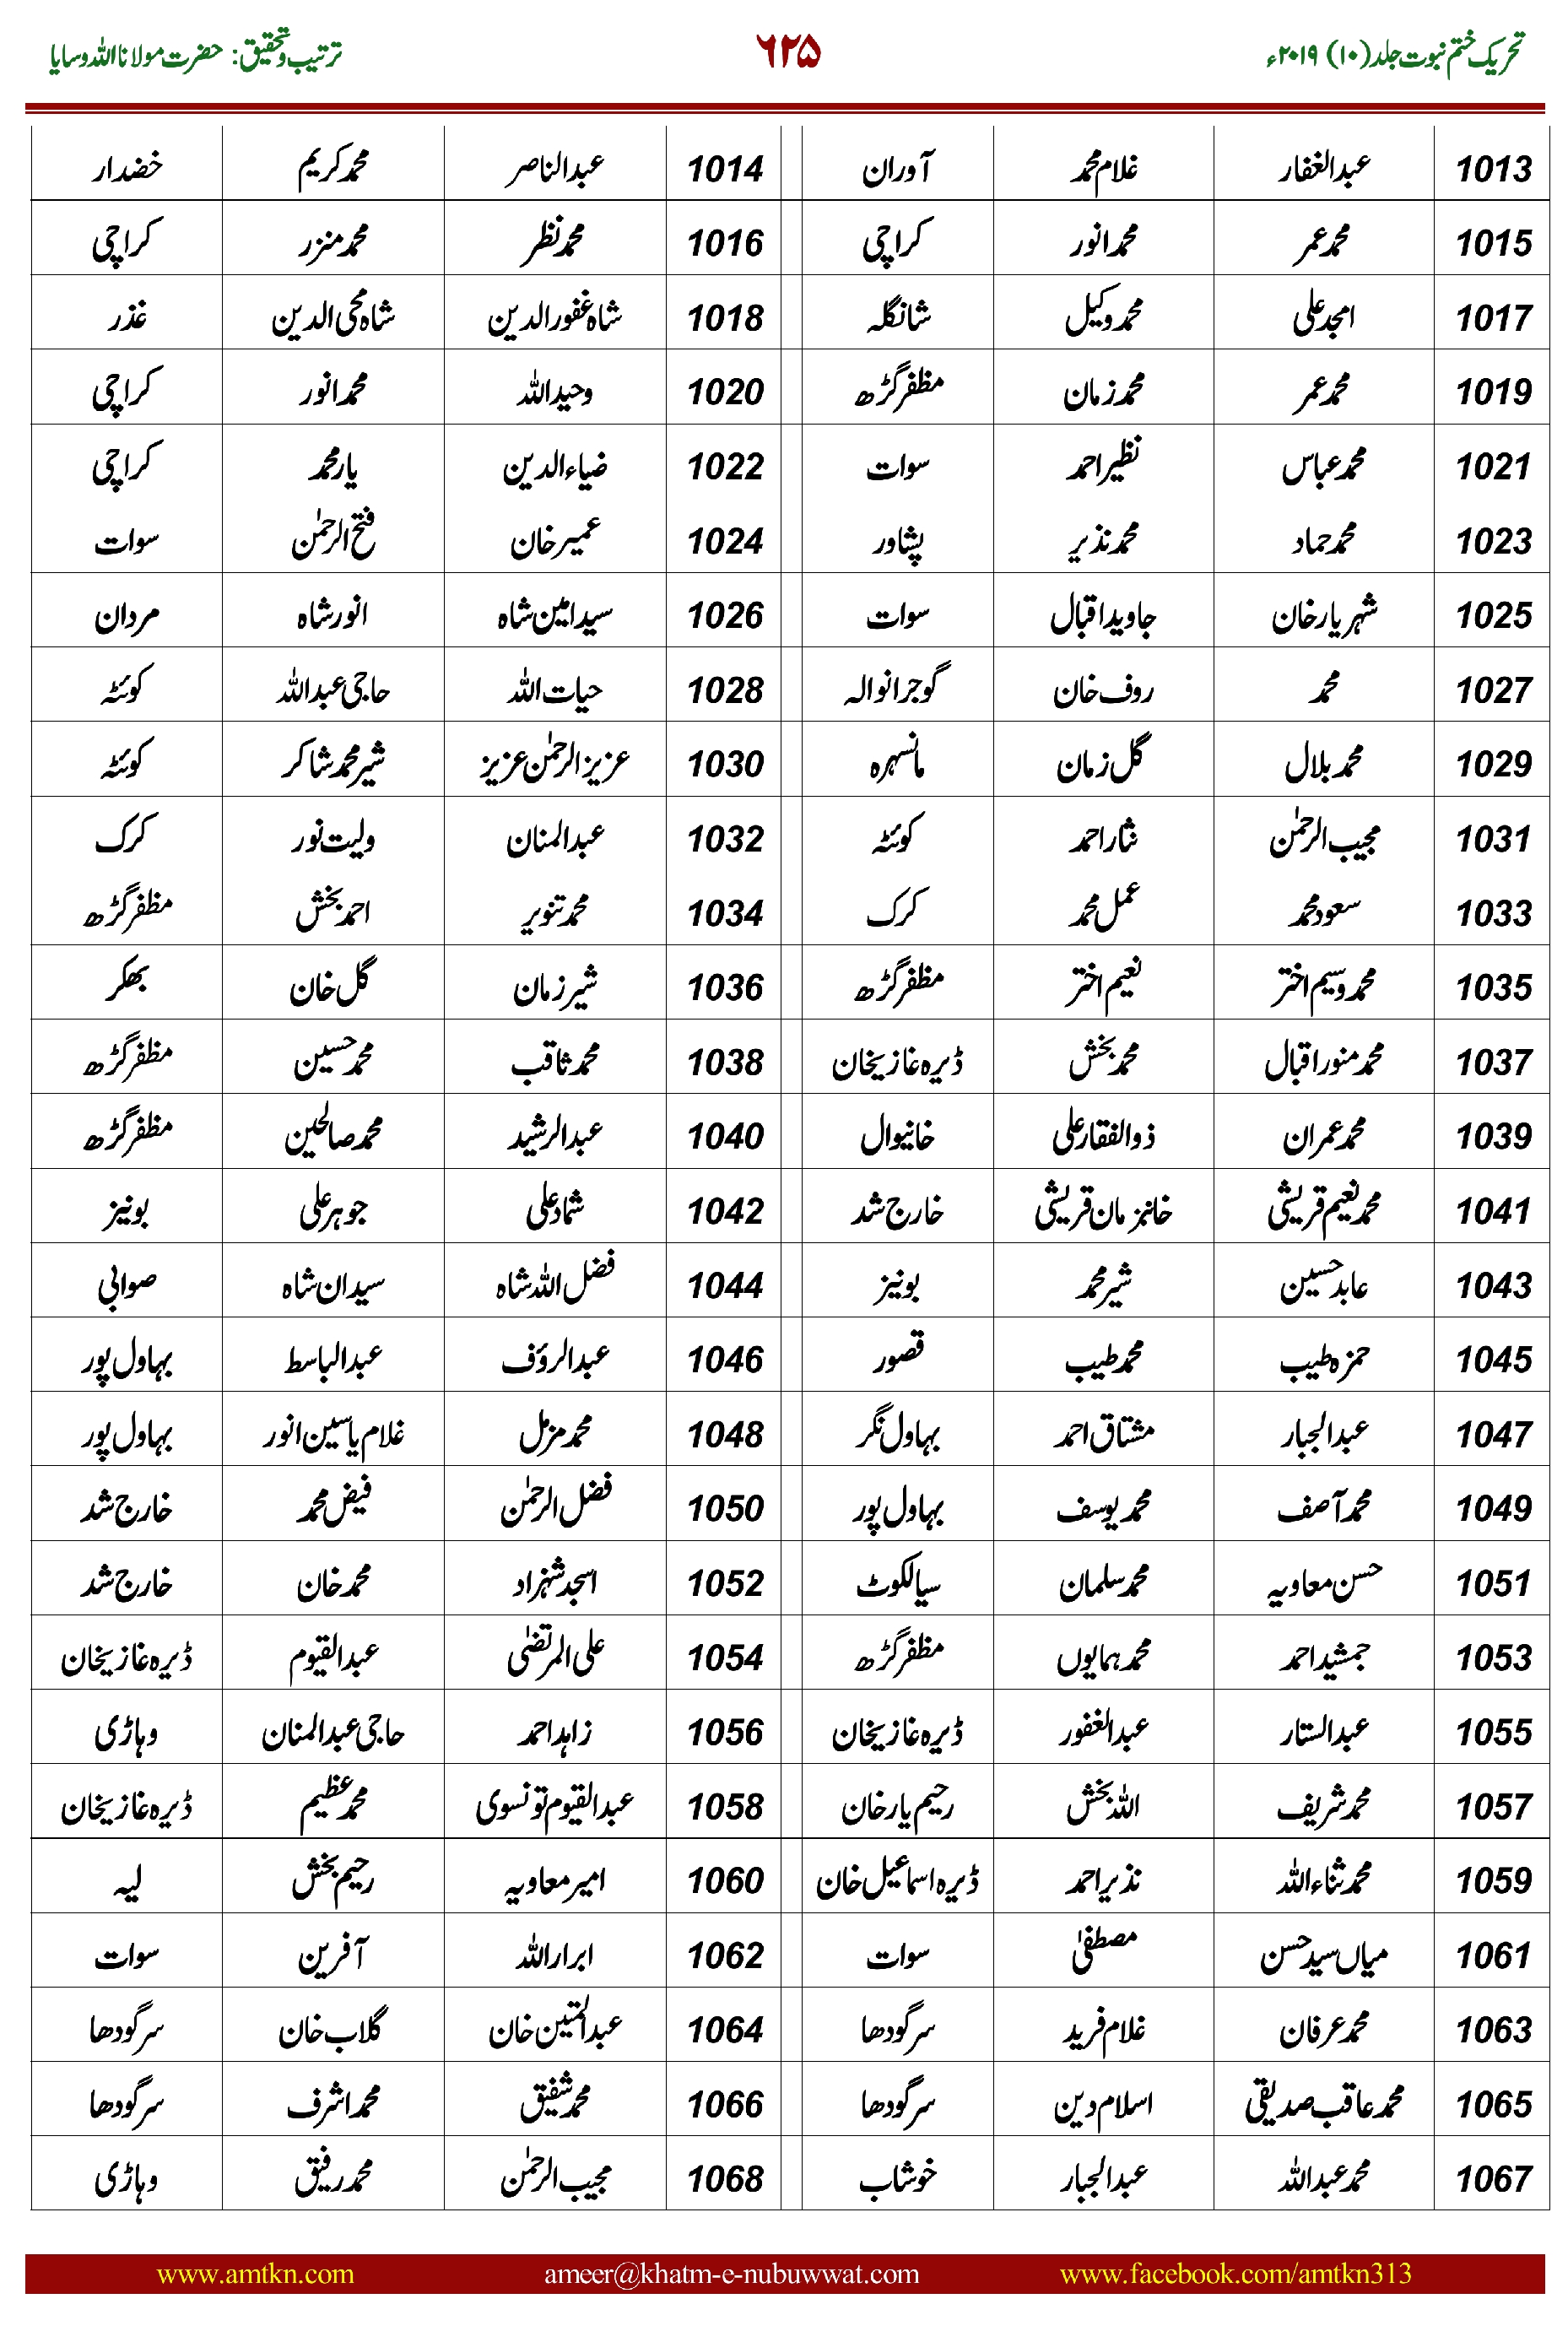 تحریک ختم نبوت جلد (۱۰) ۲۰۱۹ء ۶۲۵ ترتیب و تحقیق: حضرت مولانا اللہ وسایا
1013 عبدالغفار غلام محمد آوران 1014 عبدالناصر محمد کریم خضدار
1015 محمد عمر محمد انور کراچی 1016 محمد نظر محمد منزر کراچی
1017 امجد علی محمد وکیل شانگلہ 1018 شاہ غفور الدین شاہ محی الدین غذر
1019 محمد عمر محمد زمان مظفر گڑھ 1020 وحید اللہ محمد انور کراچی
1021 محمد عباس نظیر احمد سوات 1022 ضیاء الدین یار محمد کراچی
1023 محمد حماد محمد نذیر پشاور 1024 عمیر خان فتح الرحمٰن سوات
1025 شہریار خان جاوید اقبال سوات 1026 سید امین شاہ انور شاہ مردان
1027 محمد روف خان گوجرانوالہ 1028 حیات اللہ حاجی عبداللہ کوئٹہ
1029 محمد بلال گل زمان مانسہرہ 1030 عزیز الرحمٰن عزیز شیر محمد شاکر کوئٹہ
1031 مجیب الرحمٰن نثار احمد کوئٹہ 1032 عبدالمنان ولیت نور کرک
1033 سعود محمد عمل محمد کرک 1034 محمد تنویر احمد بخش مظفر گڑھ
1035 محمد وسیم اختر نعیم اختر مظفر گڑھ 1036 شیر زمان گل خان بھکر
1037 محمد منور اقبال محمد بخش ڈیرہ غازیخان 1038 محمد ثاقب محمد حسین مظفر گڑھ
1039 محمد عمران ذوالفقار علی خانیوال 1040 عبدالرشید محمد صالحین مظفر گڑھ
1041 محمد نعیم قریشی خانزمان قریشی خارج شد 1042 شماد علی جوہر علی بونیز
1043 عابد حسین شیر محمد بونیز 1044 فضل اللہ شاہ سیدان شاہ صوابی
1045 حمزہ طیب محمد طیب قصور 1046 عبدالرؤف عبدالباسط بہاول پور
1047 عبدالجبار مشتاق احمد بہاول نگر 1048 محمد مزمل غلام یاسین انور بہاول پور
1049 محمد آصف محمد یوسف بہاول پور 1050 فضل الرحمٰن فیض محمد خارج شد
1051 حسن معاویہ محمد سلمان سیالکوٹ 1052 اسجد شہزاد محمد خان خارج شد
1053 جمشید احمد محمد ہمایوں مظفر گڑھ 1054 علی المرتضیٰ عبدالقیوم ڈیرہ غازیخان
1055 عبدالستار عبدالغفور ڈیرہ غازیخان 1056 زاہد احمد حاجی عبدالمنان وہاڑی
1057 محمد شریف اللہ بخش رحیم یار خان 1058 عبدالقیوم تونسوی محمد عظیم ڈیرہ غازیخان
1059 محمد ثناء اللہ نذیر احمد ڈیرہ اسماعیل خان 1060 امیر معاویہ رحیم بخش لیہ
1061 میاں سید حسن مصطفیٰ سوات 1062 ابرار اللہ آفرین سوات
1063 محمد عرفان غلام فرید سرگودھا 1064 عبدالمتین خان گلاب خان سرگودھا
1065 محمد عاقب صدیقی اسلام دین سرگودھا 1066 محمد شفیق محمد اشرف سرگودھا
1067 محمد عبداللہ عبدالجبار خوشاب 1068 مجیب الرحمٰن محمد رفیق وہاڑی
www.amtkn.com ameer@khatm-e-nubuwwat.com www.facebook.com/amtkn313